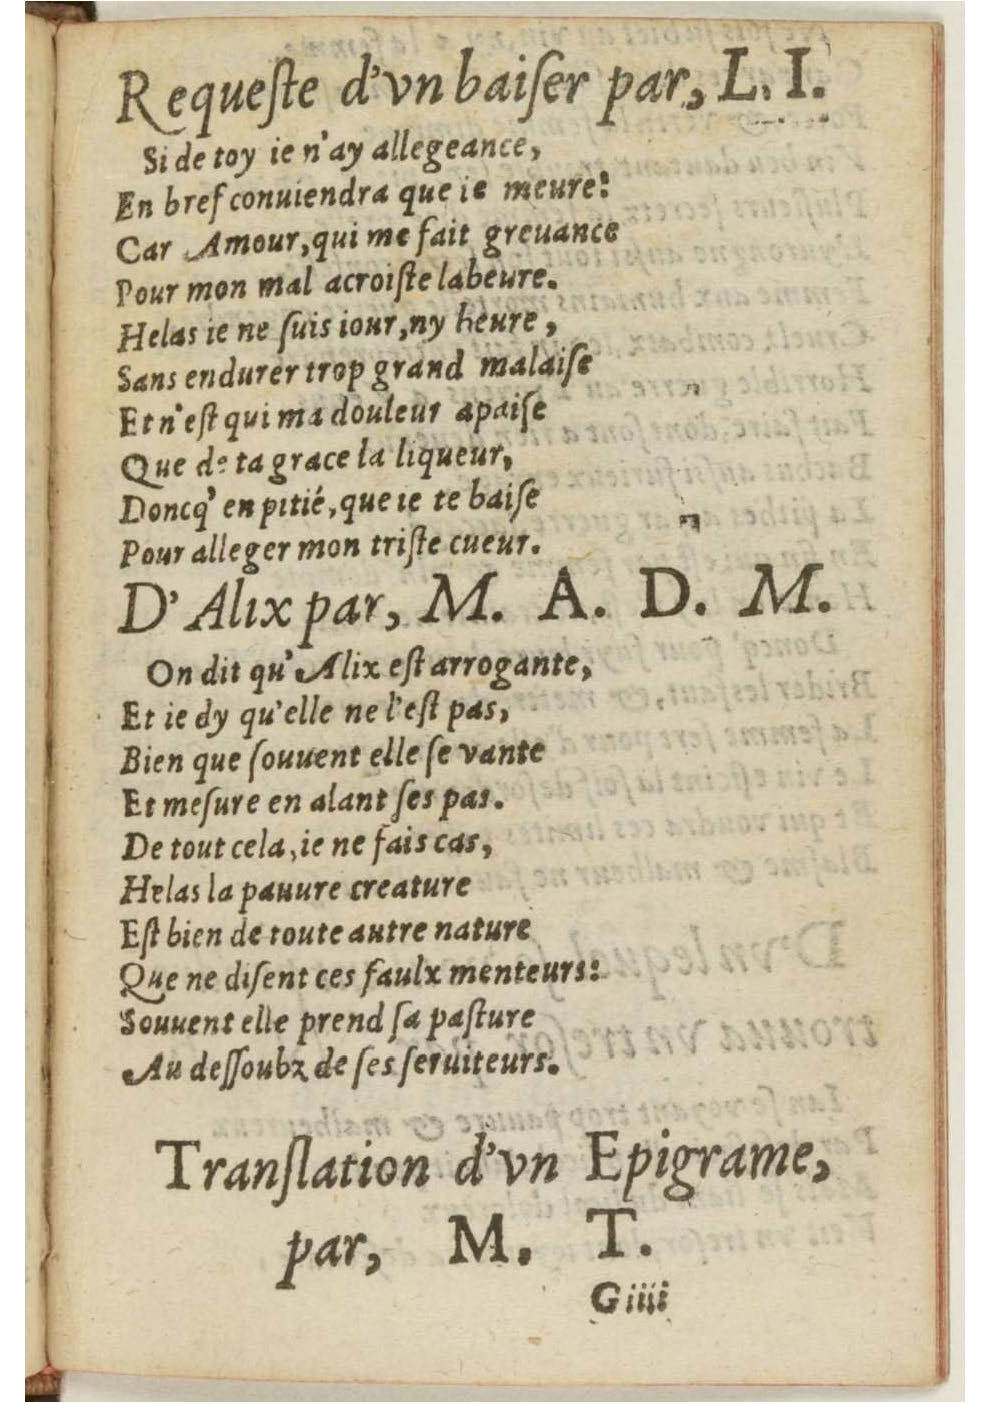 Requeſte d'vn baiſer par, L. I.
Si de toy ie n'ay allegeance,
En bref conuiendra que ie meure:
Car Amour, qui me fait greuance
Pour mon mal acroiſte labeure.
Helas ie ne ſuis iour, ny heure,
Sans endurer trop grand malaiſe
Et n'eſt qui ma douleur apaiſe
Que de ta grace la liqueur,
Doncq' en pitié, que ie te baiſe
Pour alleger mon triſte cueur.
D'Alix par, M. A. D. M.
On dit qu'Alix eſt arrogante,
Et ie dy qu'elle ne l'eſt pas,
Bien que ſouuent elle ſe vante
Et meſure en alant ſes pas.
De tout cela, ie ne fais cas,
Helas la pauure creature
Eſt bien de toute autre nature
Que ne diſent ces faulx menteurs:
Souuent elle prend ſa paſture
Au deſſoubz de ſes ſeruiteurs.
Tranſlation d'vn Epigrame,
par, M. T.
Giiii